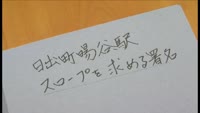 日出町暘谷駅
スロープを求める署名